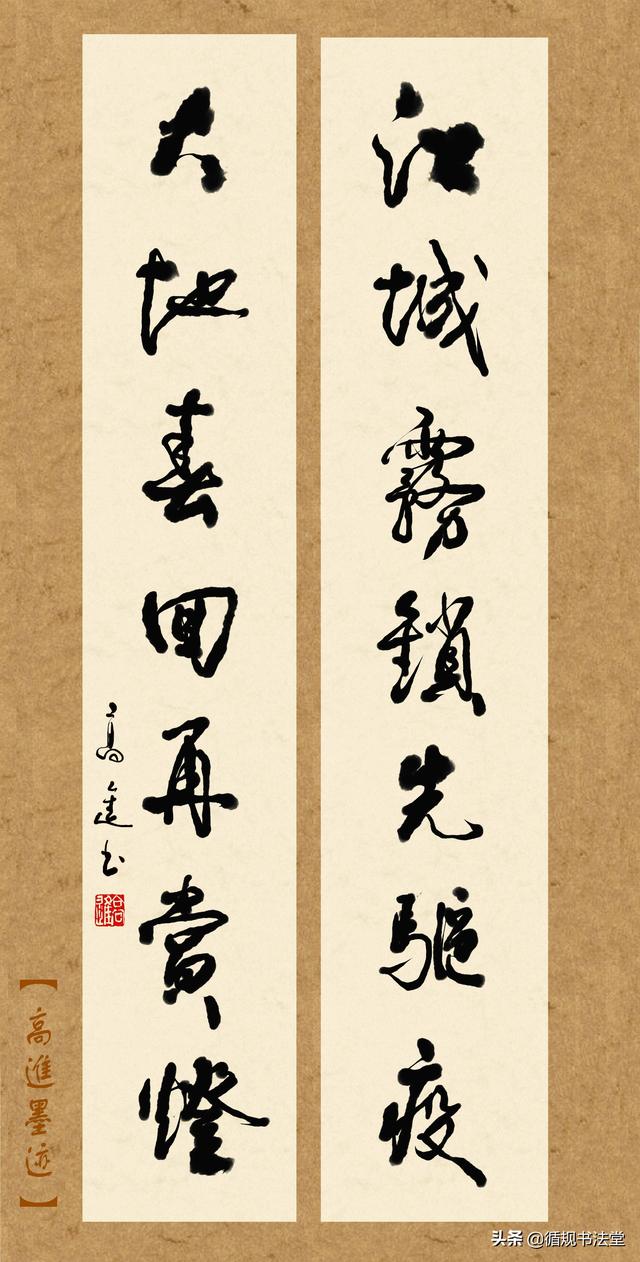 江城霧鎖先驅疫
大地春回再賞燈
高進书
高進
【高進墨迹】
头条 @循规书法堂